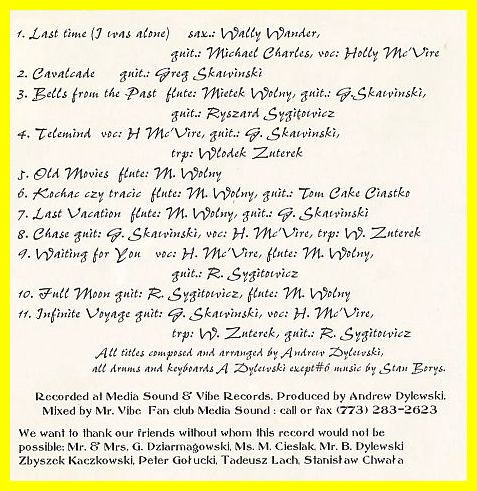 1. Last time (I was alone) sax.: Wally Wander,
guit.: Michael Charles, voc: Holly Mc'Vire
2. Cavalcade guit.: Greg Skawinski
3. Bells from the Past flute: Mietek Wolny, guit.: G.Skawinski,
guit.: Ryszard Sygitowicz
4. Telemind voc: H Mc'Vire, guit.: G. Skawinski,
trp: Wlodek Zuterek
5. Old Movies flute: M. Wolny
6. Kochac czy tracic flute: M. Wolny, guit.: Tom Cake Ciastko
7. Last Vacation flute: M. Wolny, guit.: G. Skawinski
8. Chase guit: G. Skawinski, voc: H. Mc'Vire, trp: W. Zuterek
9. Waiting for You voc: H. Mc'Vire, flute: M. Wolny,
guit.: R. Sygitowicz
10. Full Moon guit: R. Sygitowicz, flute: M. Wolny
11. Infinite Voyage guit: G. Skawinski, voc: H. Mc'Vire,
trp: W. Zuterek, guit.: R. Sygitowicz
All titles composed and arranged by Andrew Dylewski,
all drums and keyboards A Dylewski exept#6 music by Stan Borys.
Recorded at Media Sound & Vibe Records. Produced by Andrew Dylewski.
Mixed by Mr. Vibe Fan club Media Sound : call or fax (773) 283-2623
We want to thank our friends without whom this record would not be
possible: Mr. & Mrs. G. Dziarmagowski, Ms. M. Cieslak, Mr. B. Dylewski
Zbyszek Kaczkowski, Peter Gołucki, Tadeusz Lach, Stanisław Chwała